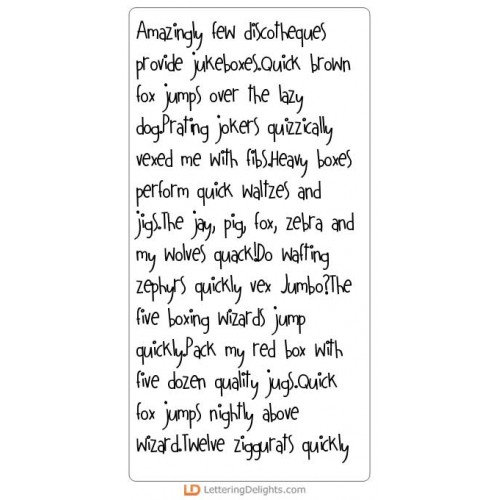 Amazingly few discotheques
provide jukeboxes.Quick brown
fox jumps over the lazy
dog.Prating jokers quizzically
vexed me with fibs.Heavy boxes
perform quick waltzes and
jigs.The jay, pig, fox, zebra and
my wolves quack!Do wafting
zephyrs quickly vex Jumbo?The
five boxing wizards jump
quickly.Pack my red box with
five dozen quality jugs.Quick
fox jumps nightly above
wizard.Twelve ziggurats quickly
LD LetteringDelights.com